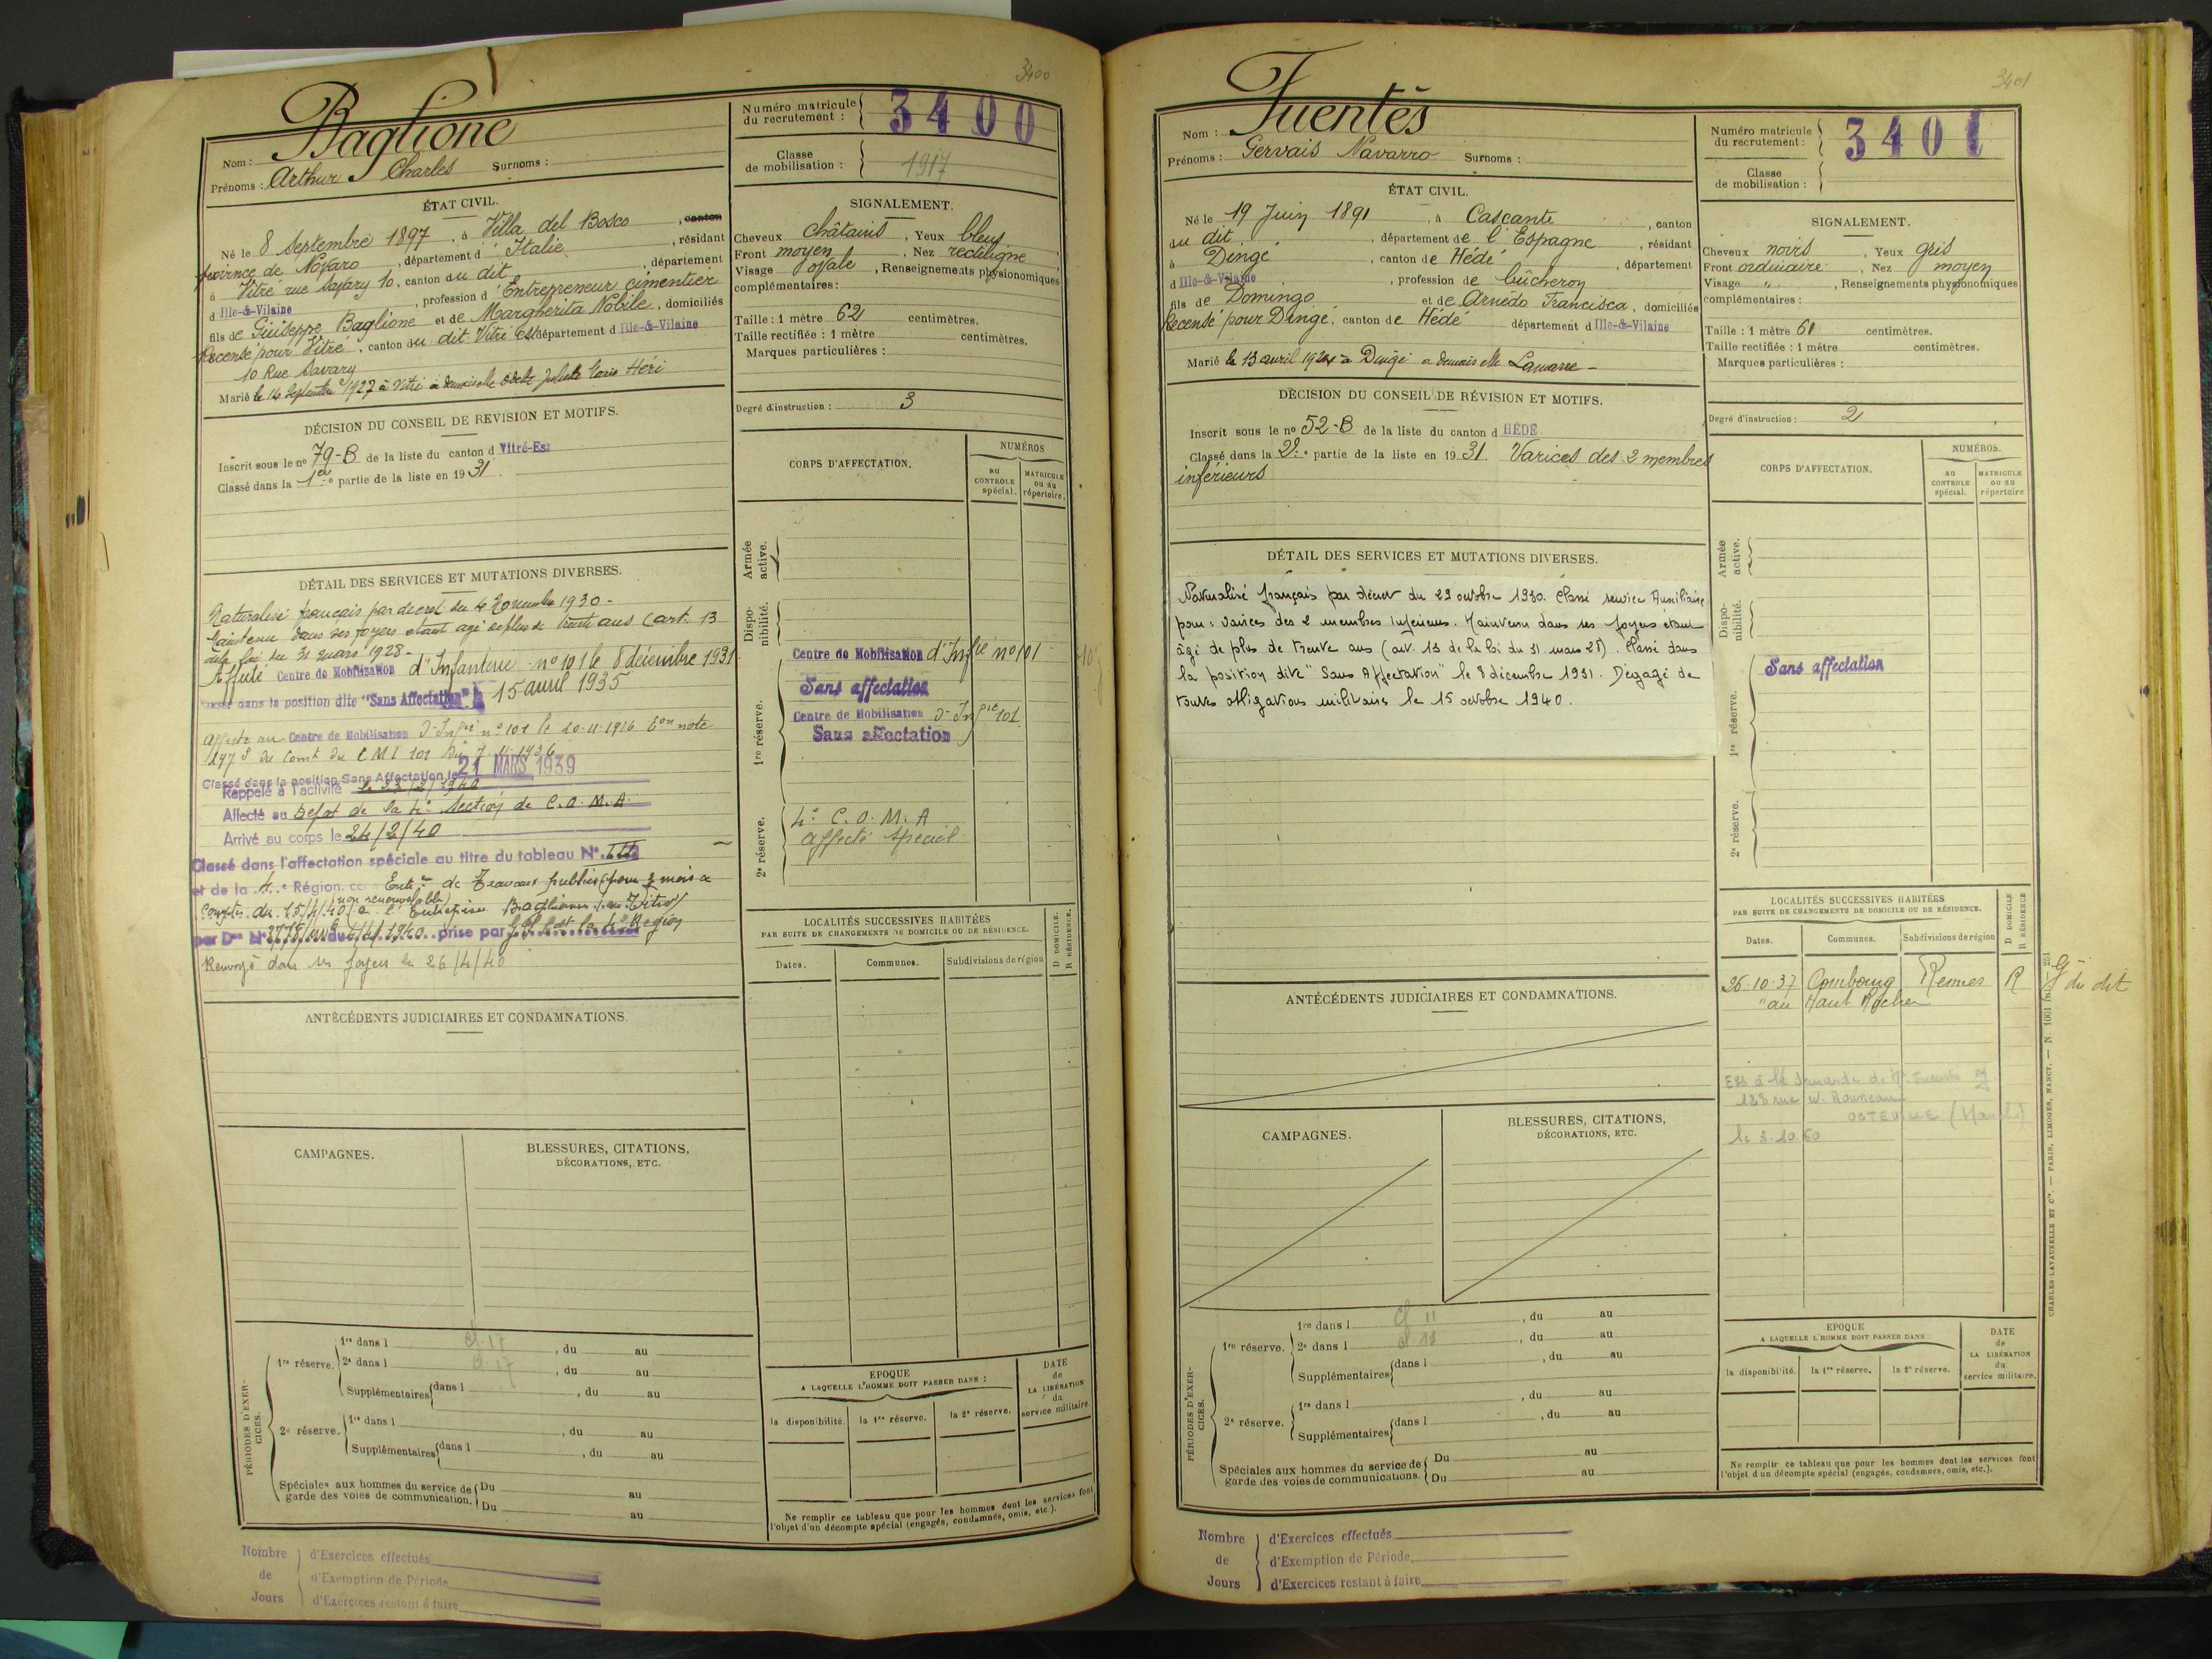 3400
Baglione
Nom :
Prénoms : Arthur Charles Surnoms :
ÉTAT CIVIL.
Né le 8 Septembre 1897, à Villa del Bosco, canton
province de Novaro, département d' Italie, résidant
à Vitré rue Savary 10, canton du dit, département
d Ille-&-Vilaine, profession d' Entrepreneur cimentier
fils de Guiseppe Baglione et de Margherita Nobile, domiciliés
Recensé pour Vitré, canton du dit Vitré Est département d Ille-&-Vilaine
10 Rue Savary
Marié le 14 Septembre 1927 à Vitré à demoiselle Odette Juliette Héri
DÉCISION DU CONSEIL DE REVISION ET MOTIFS.
Inscrit sous le nº 79-B de la liste du canton d Vitré-Est
Classé dans la 1ère partie de la liste en 1931.
DÉTAIL DES SERVICES ET MUTATIONS DIVERSES.
Naturalisé français par décret du 4 novembre 1930 -
Maintenu dans ses foyers étant agé de plus de trente ans (art. 13
de la loi du 31 mars 1928 -
Affecté Centre de Mobilisation d'Infanterie nº 101 le 8 décembre 1931
Classé dans la position dite "Sans Affectation" le 15 avril 1935
Affecté au Centre de Mobilisation d'Infie nº 101 le 10-11-1936 Son note
1197 S du Comt du C M I 101 du 7.11.1936
Classé dans la position Sans Affectation le 21 MARS 1939
Rappelé à l'activité le 23/2/1940
Affecté au Dépot de la 4e Section de C.O.M.A.
Arrivé au corps le 24/2/40
Classé dans l'affectation spéciale au titre du tableau Nº III
et de la 4e Région Entse de Travaux publics (pour 3 mois à
compter du 15/4/40 (non renouvelable) à l'Entreprise Baglione Vitré
par Don Nº 3778 du 1940 prise par la 4e Région
Renvoyé dans ses foyers le 26/4/40
ANTÉCÉDENTS JUDICIAIRES ET CONDAMNATIONS.
CAMPAGNES.
BLESSURES, CITATIONS,
DÉCORATIONS, ETC.
PÉRIODES D'EXER-
CICES.
1re réserve. 1re dans l cl 17, du au
2e dans l cl 17, du au
Supplémentaires dans l, du au
2e réserve. 1re dans l, du au
Supplémentaires dans l, du au
Spéciales aux hommes du service de garde des voies de communication. Du au
Du au
Nombre de Jours
d'Exercices effectués
d'Exemption de Période
d'Exercices restant à faire
Numéro matricule du recrutement : 3400
Classe de mobilisation : 1917
SIGNALEMENT.
Cheveux châtains, Yeux bleus
Front moyen, Nez rectiligne
Visage ovale, Renseignements physionomiques
complémentaires :
Taille : 1 mètre 62 centimètres.
Taille rectifiée : 1 mètre centimètres.
Marques particulières :
Degré d'instruction : 3
CORPS D'AFFECTATION.
NUMÉROS
au CONTROLE spécial.
MATRICULE ou au répertoire.
Armée active.
Dispo-
nibilité.
1re réserve.
Centre de Mobilisation d'Infie nº 101
Sans affectation
Centre de Mobilisation d'Infie 101
Sans affectation
2e réserve.
4e C.O.M.A
Affecté spécial
LOCALITÉS SUCCESSIVES HABITÉES
PAR SUITE DE CHANGEMENTS DE DOMICILE OU DE RÉSIDENCE.
Dates.
Communes.
Subdivisions de région
D DOMICILE.
R RÉSIDENCE.
EPOQUE
A LAQUELLE L'HOMME DOIT PASSER DANS :
la disponibilité.
la 1re réserve.
la 2e réserve.
DATE de LA LIBÉRATION du service militaire.
Ne remplir ce tableau que pour les hommes dont les services font
l'objet d'un décompte spécial (engagés, condamnés, omis, etc.).
3401
Nom : Fuentès
Prénoms : Gervais Navarro Surnoms :
ÉTAT CIVIL.
Né le 19 Juin 1891, à Cascante, canton
du dit, département de l'Espagne, résidant
à Dingé, canton de Hédé, département
d Ille-&-Vilaine, profession de bûcheron
fils de Domingo et de Arnédo Francisca, domiciliés
Recensé pour Dingé, canton de Hédé département d Ille-&-Vilaine
Marié le 13 avril 1924 à Dingé à demoiselle Lamarre -
DÉCISION DU CONSEIL DE RÉVISION ET MOTIFS.
Inscrit sous le nº 52-B de la liste du canton d HÉDÉ
Classé dans la 2e partie de la liste en 1931. Varices des 2 membres
inférieurs
DÉTAIL DES SERVICES ET MUTATIONS DIVERSES.
Naturalisé français par décret du 29 octobre 1930. Classé service Auxiliaire
pour : Varices des 2 membres Inférieurs. Maintenu dans ses foyers étant
âgé de plus de trente ans (art. 13 de la loi du 31 mars 28). Classé dans
la position dite "Sans Affectation" le 8 décembre 1931. Dégagé de
toutes obligations militaires le 15 octobre 1940.
ANTÉCÉDENTS JUDICIAIRES ET CONDAMNATIONS.
CAMPAGNES.
BLESSURES, CITATIONS,
DÉCORATIONS, ETC.
PÉRIODES D'EXER-
CICES.
1re réserve. 1re dans l cl 11, du au
2e dans l cl 11, du au
Supplémentaires dans l, du au
2e réserve. 1re dans l, du au
Supplémentaires dans l, du au
Spéciales aux hommes du service de garde des voies de communications. Du au
Du au
Nombre de Jours
d'Exercices effectués
d'Exemption de Période
d'Exercices restant à faire
Numéro matricule du recrutement : 3401
Classe de mobilisation :
SIGNALEMENT.
Cheveux noirs, Yeux gris
Front ordinaire, Nez moyen
Visage ", Renseignements physionomiques
complémentaires :
Taille : 1 mètre 61 centimètres.
Taille rectifiée : 1 mètre centimètres.
Marques particulières :
Degré d'instruction : 2
CORPS D'AFFECTATION.
NUMÉROS.
au CONTROLE spécial.
MATRICULE ou au répertoire
Armée active.
Dispo-
nibilité.
1re réserve.
Sans affectation
2e réserve.
LOCALITÉS SUCCESSIVES HABITÉES
PAR SUITE DE CHANGEMENTS DE DOMICILE OU DE RÉSIDENCE.
Dates.
Communes.
Subdivisions de région
D DOMICILE
R RÉSIDENCE
26-10-37 Combourg Rennes R Gie du dit
" au Haut Rocher
ESS à la demande de Mr Fuentès
123 rue W. Rousseau
OCTEVILLE (Manche)
le 3.10.60
EPOQUE
A LAQUELLE L'HOMME DOIT PASSER DANS
la disponibilité.
la 1re réserve.
la 2e réserve.
DATE de LA LIBÉRATION du service militaire.
Ne remplir ce tableau que pour les hommes dont les services font
l'objet d'un décompte spécial (engagés, condamnés, omis, etc.).
CHARLES-LAVAUZELLE ET Cie. — PARIS, LIMOGES, NANCY. — N 1001